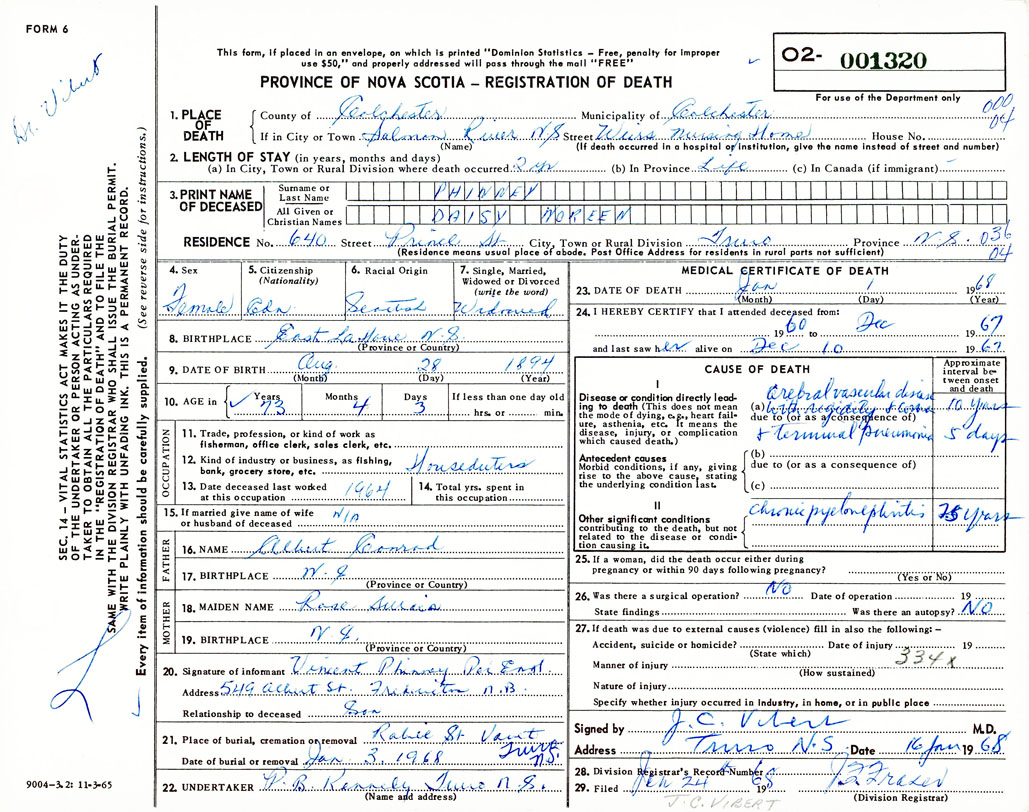 FORM 6
Dr. Vibert
This form, if placed in an envelope, on which is printed "Dominion Statistics – Free, penalty for improper
use $50," and properly addressed will pass through the mail "FREE"
PROVINCE OF NOVA SCOTIA – REGISTRATION OF DEATH
O2- 001320
For use of the Department only
000
04
1. PLACE OF DEATH
County of Colchester Municipality of Colchester
If in City or Town Salmon River N S Street Weirs Nursing Home House No.
(Name) (If death occurred in a hospital or institution, give the name instead of street and number)
2. LENGTH OF STAY (in years, months and days)
(a) In City, Town or Rural Division where death occurred 2 yr (b) In Province Life (c) In Canada (if immigrant) –
3. PRINT NAME OF DECEASED
Surname or Last Name PHINNEY
All Given or Christian Names DAISY NOREEN
RESIDENCE No. 640 Street Prince St City, Town or Rural Division Truro Province N.S. 036
04
(Residence means usual place of abode. Post Office Address for residents in rural parts not sufficient)
4. Sex
Female
5. Citizenship
(Nationality)
Cdn
6. Racial Origin
Scottish
7. Single, Married,
Widowed or Divorced
(write the word)
Widowed
8. BIRTHPLACE East LaHave N.S.
(Province or Country)
9. DATE OF BIRTH Aug. 28 1894
(Month) (Day) (Year)
10. AGE in Years 73 Months 4 Days 3 If less than one day old
hrs. or min.
OCCUPATION
11. Trade, profession, or kind of work as
fisherman, office clerk, sales clerk, etc.
12. Kind of industry or business, as fishing,
bank, grocery store, etc. Houseduters
13. Date deceased last worked
at this occupation 1964
14. Total yrs. spent in
this occupation
15. If married give name of wife
or husband of deceased N/A
FATHER
16. NAME Albert Conrad
17. BIRTHPLACE N.S
(Province or Country)
MOTHER
18. MAIDEN NAME Rose
19. BIRTHPLACE N.S.
(Province or Country)
20. Signature of informant Vincent Phinney
Address 549 Albert St. Fredericton N.B.
Relationship to deceased Son
21. Place of burial, cremation or removal Robie St Vault
Truro
N.S.
Date of burial or removal Jan 3, 1968
22. UNDERTAKER P.B. Kennedy Truro N.S.
(Name and address)
MEDICAL CERTIFICATE OF DEATH
23. DATE OF DEATH Jan 1 1968
(Month) (Day) (Year)
24. I HEREBY CERTIFY that I attended deceased from:
1960 to Dec 1967
and last saw her alive on Dec 10 1967
CAUSE OF DEATH
Approximate
interval be-
tween onset
and death
I
Disease or condition directly lead-
ing to death (This does not mean
the mode of dying, e.g., heart fail-
ure, asthenia, etc. It means the
disease, injury, or complication
which caused death.)
Cerebral vascular disease
(a) with rigidity & coma 10 years
due to (or as a consequence of)
& terminal pneumonia 5 days
Antecedent causes
Morbid conditions, if any, giving
rise to the above cause, stating
the underlying condition last.
(b)
due to (or as a consequence of)
(c)
II
Other significant conditions
contributing to the death, but not
related to the disease or condi-
tion causing it.
chronic pyelonephritis years
25. If a woman, did the death occur either during
pregnancy or within 90 days following pregnancy?
(Yes or No)
26. Was there a surgical operation? NO Date of operation 19
State findings Was there an autopsy? NO
27. If death was due to external causes (violence) fill in also the following: –
Accident, suicide or homicide? Date of injury 19
(State which) 334x
Manner of injury
(How sustained)
Nature of injury
Specify whether injury occurred in industry, in home, or in public place
Signed by J.C. Vibert M.D.
Address Truro N.S Date 16 Jan 1968
28. Division Registrar's Record Number
29. Filed Jan 24 1968 Frazer
(Division Registrar)
J.C. VIBERT
SEC. 14 – VITAL STATISTICS ACT MAKES IT THE DUTY
OF THE UNDERTAKER OR PERSON ACTING AS UNDER-
TAKER TO OBTAIN ALL THE PARTICULARS REQUIRED
IN THE "REGISTRATION OF DEATH" AND TO FILE THE
SAME WITH THE DIVISION REGISTRAR WHO SHALL ISSUE THE BURIAL PERMIT.
WRITE PLAINLY WITH UNFADING INK. THIS IS A PERMANENT RECORD.
Every item of information should be carefully supplied. (See reverse side for instructions.)
9004-3.2: 11-3-65